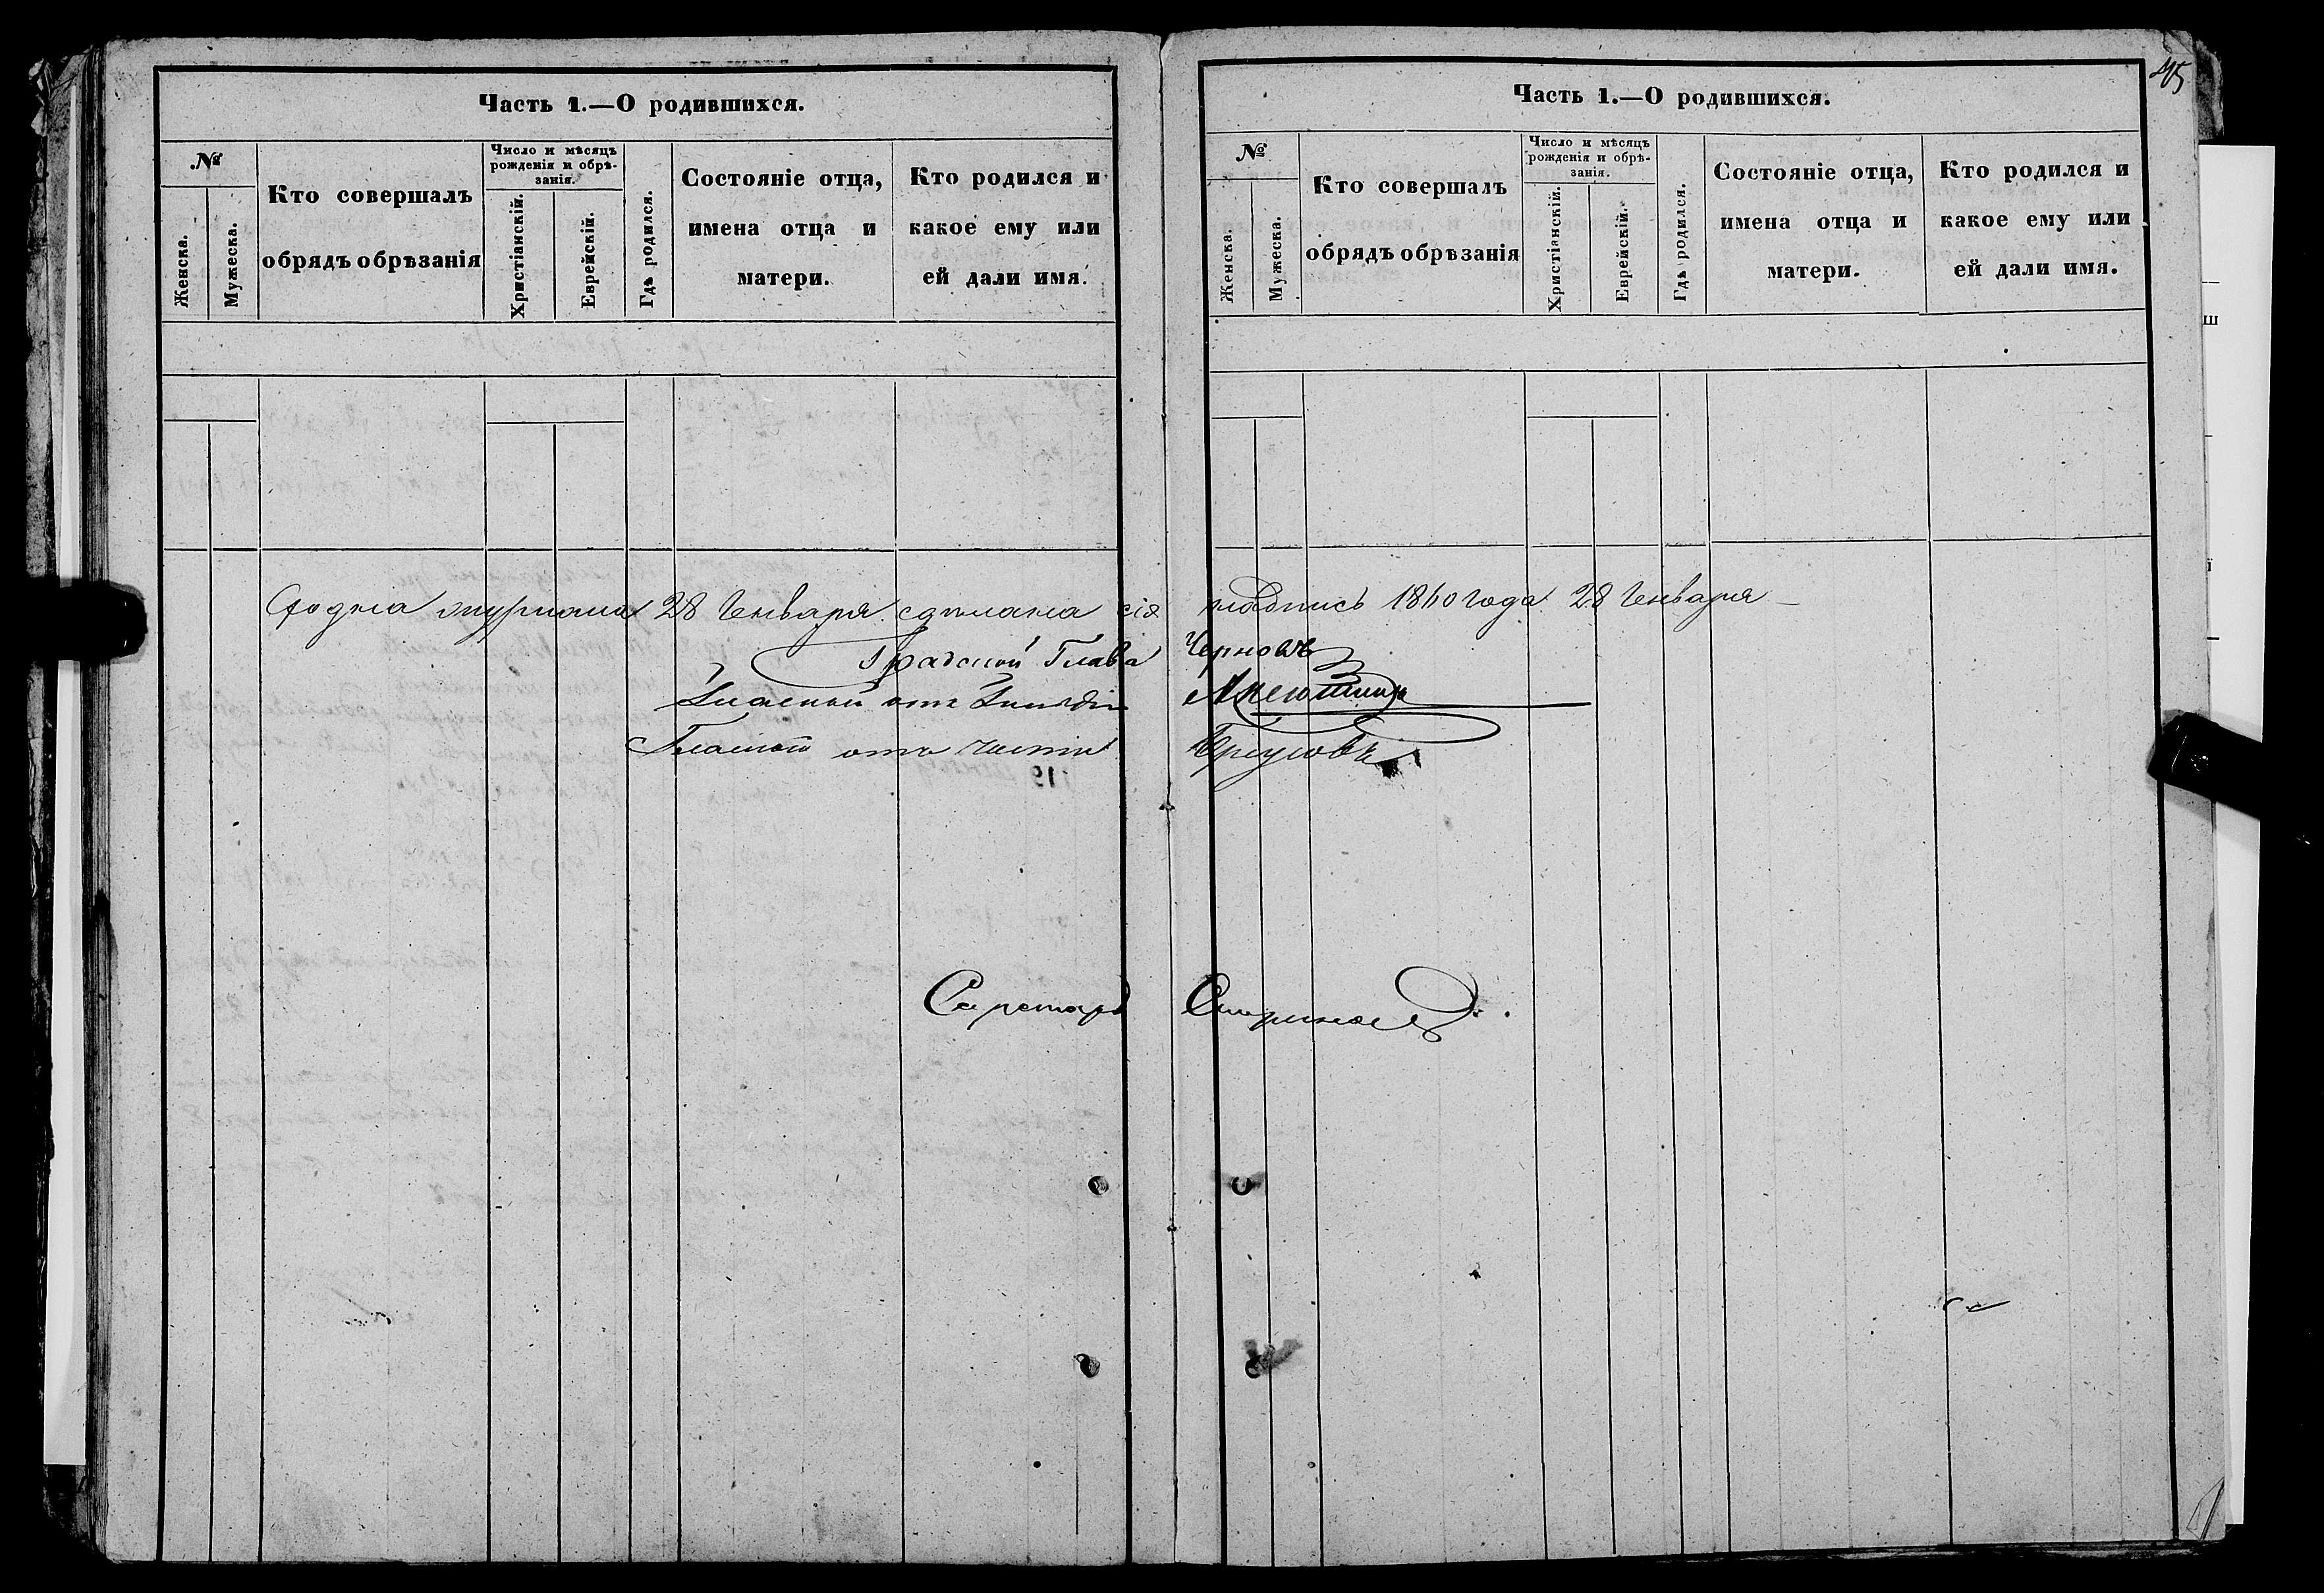 Часть 1.—О родившихся.
№
Женска.
Мужеска.
Кто совершалъ
обрядъ обрѣзанія
Число и мѣсяцъ
рожденія и обрѣ-
занія.
Христіанскій.
Еврейскій.
Гдѣ родился.
Состояніе отца,
имена отца и
матери.
Кто родился и
какое ему или
ей дали имя.
45
Часть 1.—О родившихся.
№
Женска.
Мужеска.
Кто совершалъ
обрядъ обрѣзанія
Число и мѣсяцъ
рожденія и обрѣ-
занія.
Христіанскій.
Еврейскій.
Гдѣ родился.
Состояніе отца,
имена отца и
матери.
Кто родился и
какое ему или
ей дали имя.
журнала 28 Генваря сдѣлана сія надпись 1860 года 28 Генваря
Градской Глава Черновъ
Гласный отъ
Гласный отъ части
Секретарь